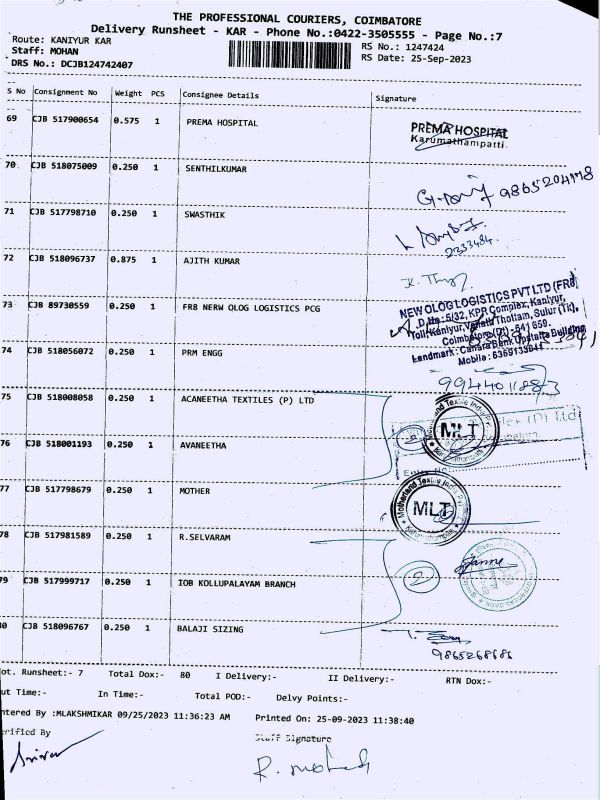 THE PROFESSIONAL COURIERS, COIMBATORE
Delivery Runsheet - KAR - Phone No.:0422-3505555 - Page No.:7
Route: KANIYUR KAR
RS No.: 1247424
Staff: MOHAN
RS Date: 25-Sep-2023
DRS No.: DCJB124742407
S No Consignment No Weight PCS Consignee Details Signature
69 CJB 517900654 0.575 1 PREMA HOSPITAL
PREMA HOSPITAL
Karumathampatti.
70 CJB 518075009 0.250 1 SENTHILKUMAR
9865204178
71 CJB 517798710 0.250 1 SWASTHIK
2333484
72 CJB 518096737 0.875 1 AJITH KUMAR
73 CJB 89730559 0.250 1 FR8 NERW OLOG LOGISTICS PCG
NEW OLOG LOGISTICS PVT LTD (FR8)
D.No: 5/32, KPR Complex, Kaniyur,
Toll, Kaniyur, Thottam, Sulur (Tk),
Coimbatore (Dt) - 641 659.
Landmark: Canara Bank Upstairs Building
Mobile: 6369133841
74 CJB 518056072 0.250 1 PRM ENGG
75 CJB 518008058 0.250 1 ACANEETHA TEXTILES (P) LTD
MLT
76 CJB 518001193 0.250 1 AVANEETHA
77 CJB 517798679 0.250 1 MOTHER
MLT
78 CJB 517981589 0.250 1 R.SELVARAM
79 CJB 517999717 0.250 1 IOB KOLLUPALAYAM BRANCH
2
80 CJB 518096767 0.250 1 BALAJI SIZING
9865268686
ot. Runsheet:- 7 Total Dox:- 80 I Delivery:- II Delivery:- RTN Dox:-
ut Time:- In Time:- Total POD:- Delvy Points:-
ntered By :MLAKSHMIKAR 09/25/2023 11:36:23 AM Printed On: 25-09-2023 11:38:40
erified By Staff Signature
R. Mohan